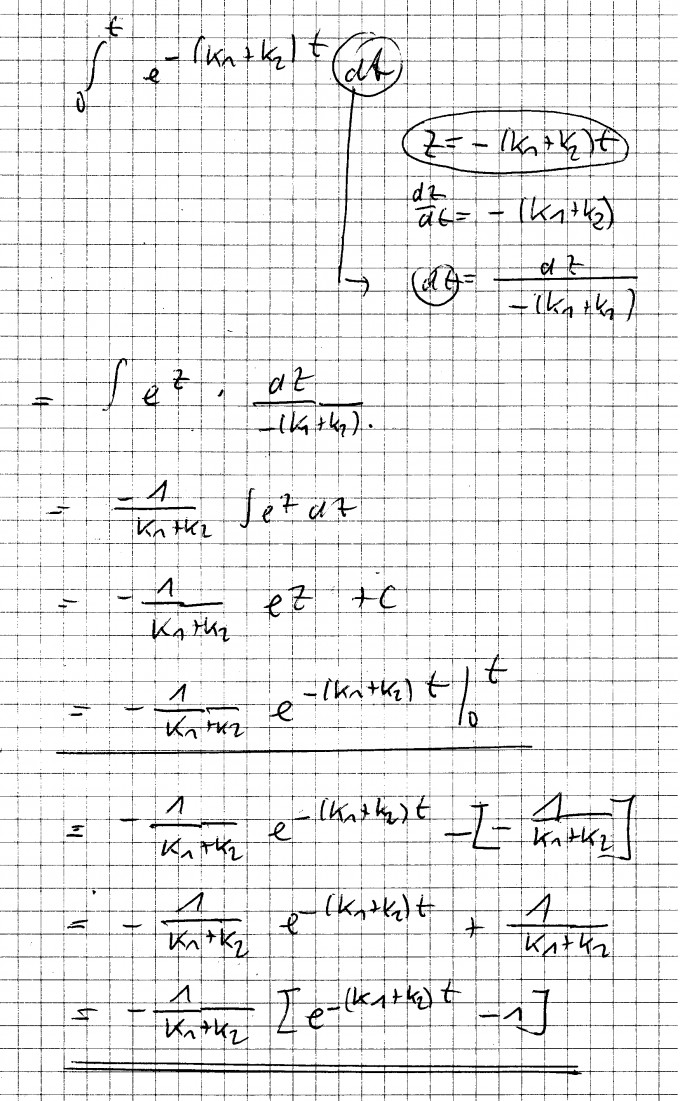 ∫₀ᵗ e^-(k1+k2)t dt
z = -(k1+k2)t
dz/dt = -(k1+k2)
→ dt = dz/-(k1+k2)
= ∫ e^z · dz/-(k1+k2).
= -1/k1+k2 ∫ e^z dz
= -1/k1+k2 e^z + C
= -1/k1+k2 e^-(k1+k2)t |₀ᵗ
= -1/k1+k2 e^-(k1+k2)t -[-1/k1+k2]
= -1/k1+k2 e^-(k1+k2)t + 1/k1+k2
= -1/k1+k2 [e^-(k1+k2)t -1]